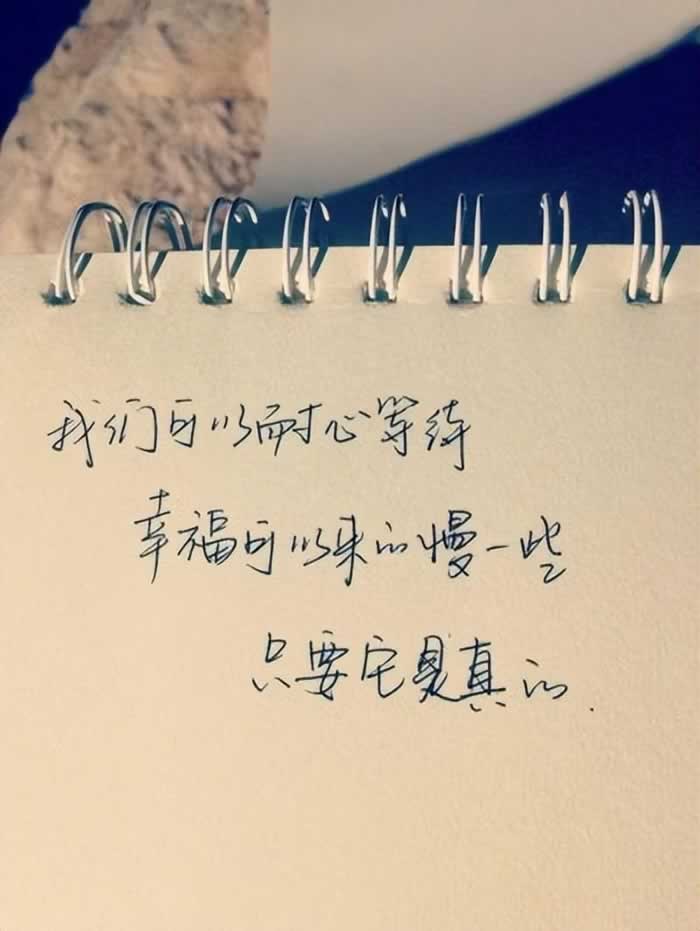 我们可以耐心等待
幸福可以来的慢一些
只要它是真的.